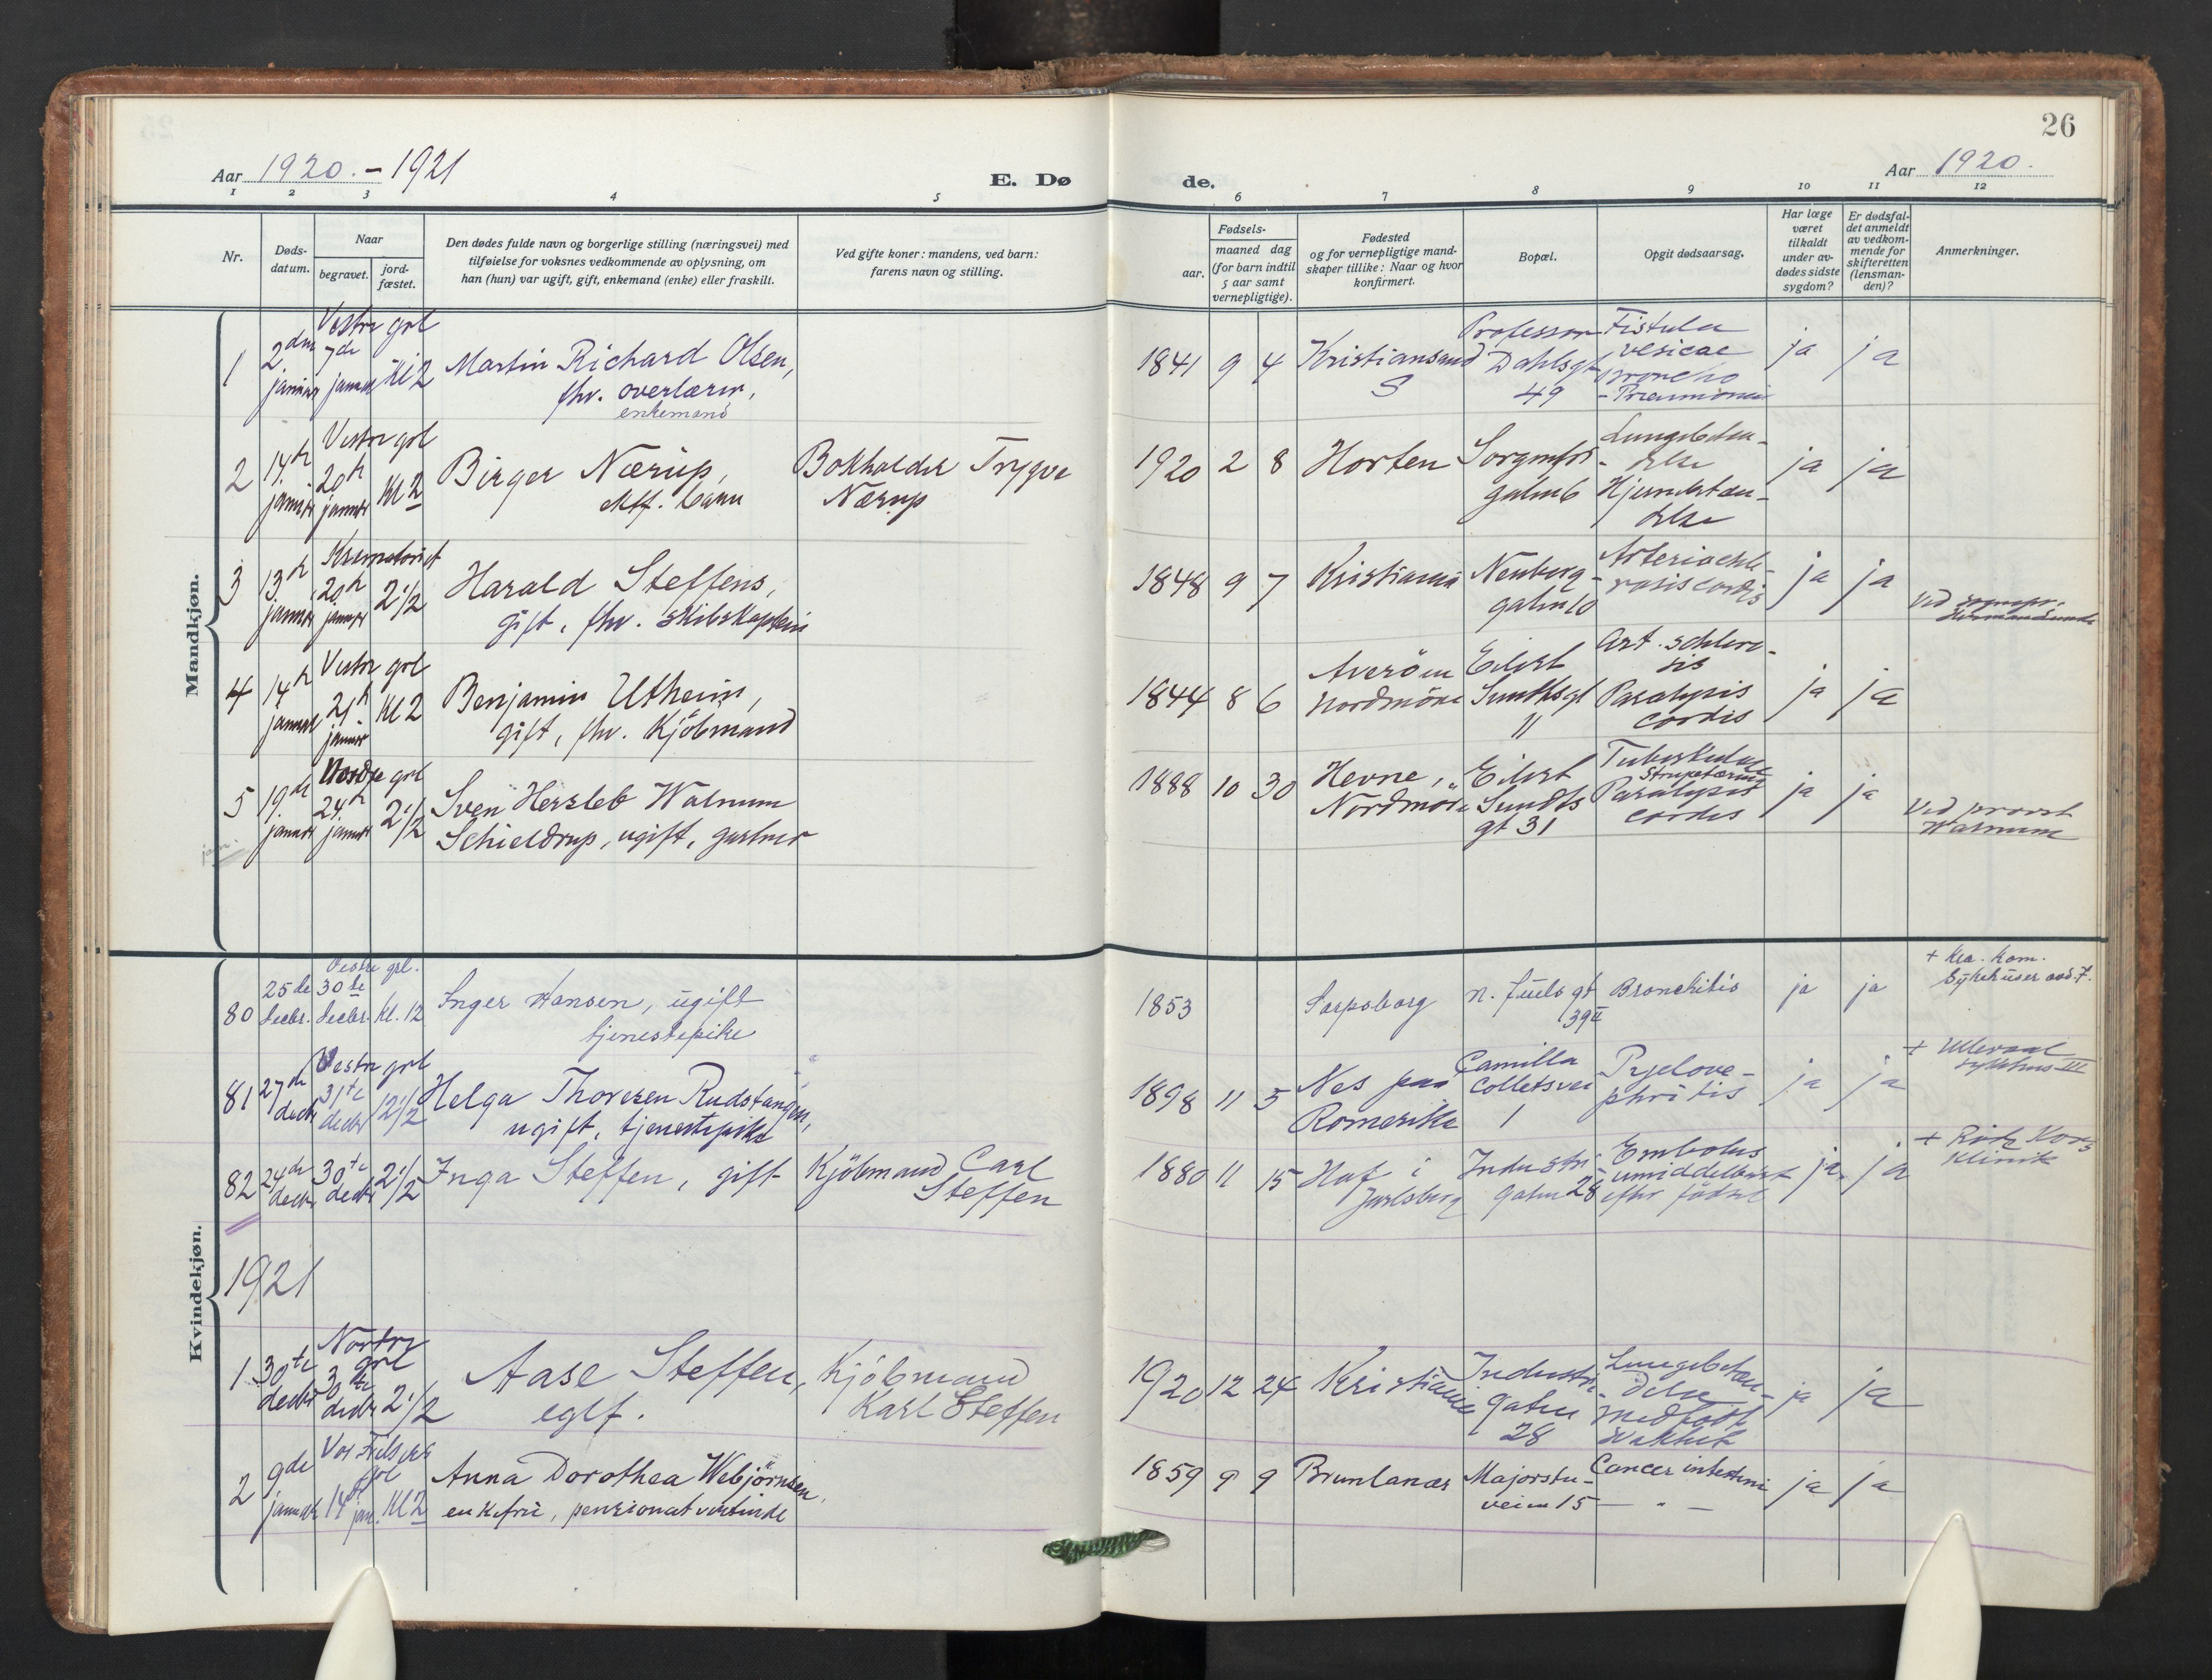 26
Aar 1920. - 1921
E. Dø
de.
Aar 1920.
1 2 3 4 5 6 7 8 9 10 11 12
Nr.
Døds-
datum.
Naar
begravet.
jord-
fæstet.
Den dødes fulde navn og borgerlige stilling (næringsvei) med
tilføielse for voksnes vedkommende av oplysning, om
han (hun) var ugift, gift, enkemand (enke) eller fraskilt.
Ved gifte koner: mandens, ved barn:
farens navn og stilling.
Fødsels-
aar.
maaned dag
(for barn indtil
5 aar samt
vernepligtige).
Fødested
og for vernepligtige mand-
skaper tillike: Naar og hvor
konfirmert.
Bopæl.
Opgit dødsaarsag.
Har læge
været
tilkaldt
under av-
dødes sidste
sygdom?
Er dødsfal-
det anmeldt
av vedkom-
mende for
skifteretten
(lensman-
den)?
Anmerkninger.
Mandkjøn.
1
2den
januar
Vestre grl
7de
januar
Kl 2
Martin Richard Olsen,
fhv. overlærer,
enkemand
1841 9 4
Kristiansand
S
Professor
Dahlsgt
49
Fistula
vesicae
Broncho
-Pneumonia
ja ja
2
14de
januar
Vestre grl
20de
januar
Kl 2
Birger Nærup,
barn
Bokholder Trygve
Nærup
1920 2 8
Horten
Sorgenfri-
gaten 6
Lungebeten-
delse
Hjernebeten-
delse
ja ja
3
13de
januar
Krematoriet
20de
januar
2 1/2
Harald Steffens,
gift, fhv. skibskaptein
1848 9 7
Kristiania
Neuberg-
gaten 10
Arterioscle-
rosis cordis
ja ja
Ved sognepr.
4
14de
januar
Vestre grl
21de
januar
Kl 2
Benjamin Utheim,
gift, fhv. Kjöbmand
1844 8 6
Averöen
Nordmöre
Eilert
Sundtsgt
11
Art. sclero-
sis
Paralysis
cordis
ja ja
5
19de
januar
Nordre grl
24de
januar
2 1/2
Sven Hersleb Walnum
Schieldrup, ugift, gartner
1888 10 30
Hevne,
Nordmöre
Eilert
Sundts
gt 31
Tuberkulose
Strupetæring
Paralysis
cordis
ja ja
Ved provst
Walnum
Kvindekjøn.
80
25de
decbr.
Vestre grl.
30te
decbr.
kl. 12
Inger Hansen, ugift
tjenestepike
1853
Sarpsborg
n. Juels gt
39 II
Bronchitis
ja ja
+ Kra. kom.
Sykehuser avd. 7.
81
27de
decbr
Vestre grl
31te
decbr
12 1/2
Helga Thoresen Rudstangen,
ugift, tjenestepike
1898 11 5
Nes paa
Romerike
Camilla
Colletsvei
1
Pyelone-
phritis
ja ja
+ Ulleraal
sykehus III
82
24de
decbr
30te
decbr
2 1/2
Inga Steffen, gift
Kjöbmand Carl
Steffen
1880 11 15
Hof i
Jarlsberg
Industri-
gaten 28
Embolus
umiddelbart
efter födsel
ja ja
+ Röde Kors
Klinik
1921
1
30te
decbr
Nordre
grl
30te
decbr
2 1/2
Aase Steffen,
egtf.
Kjöbmand
Karl Steffen
1920 12 24
Kristiania
Industri-
gaten
28
Lungebeten-
delse
medfödt
svakhet
ja ja
2
9de
januar
Vor Frelsers
grl
14de
jan.
Kl 2
Anna Dorothea Webjörnsen,
enkefru, pensionatvertinde
1859 9 9
Brunlanæs
Majorstu-
veien 15
Cancer intestini
— " —
ja ja